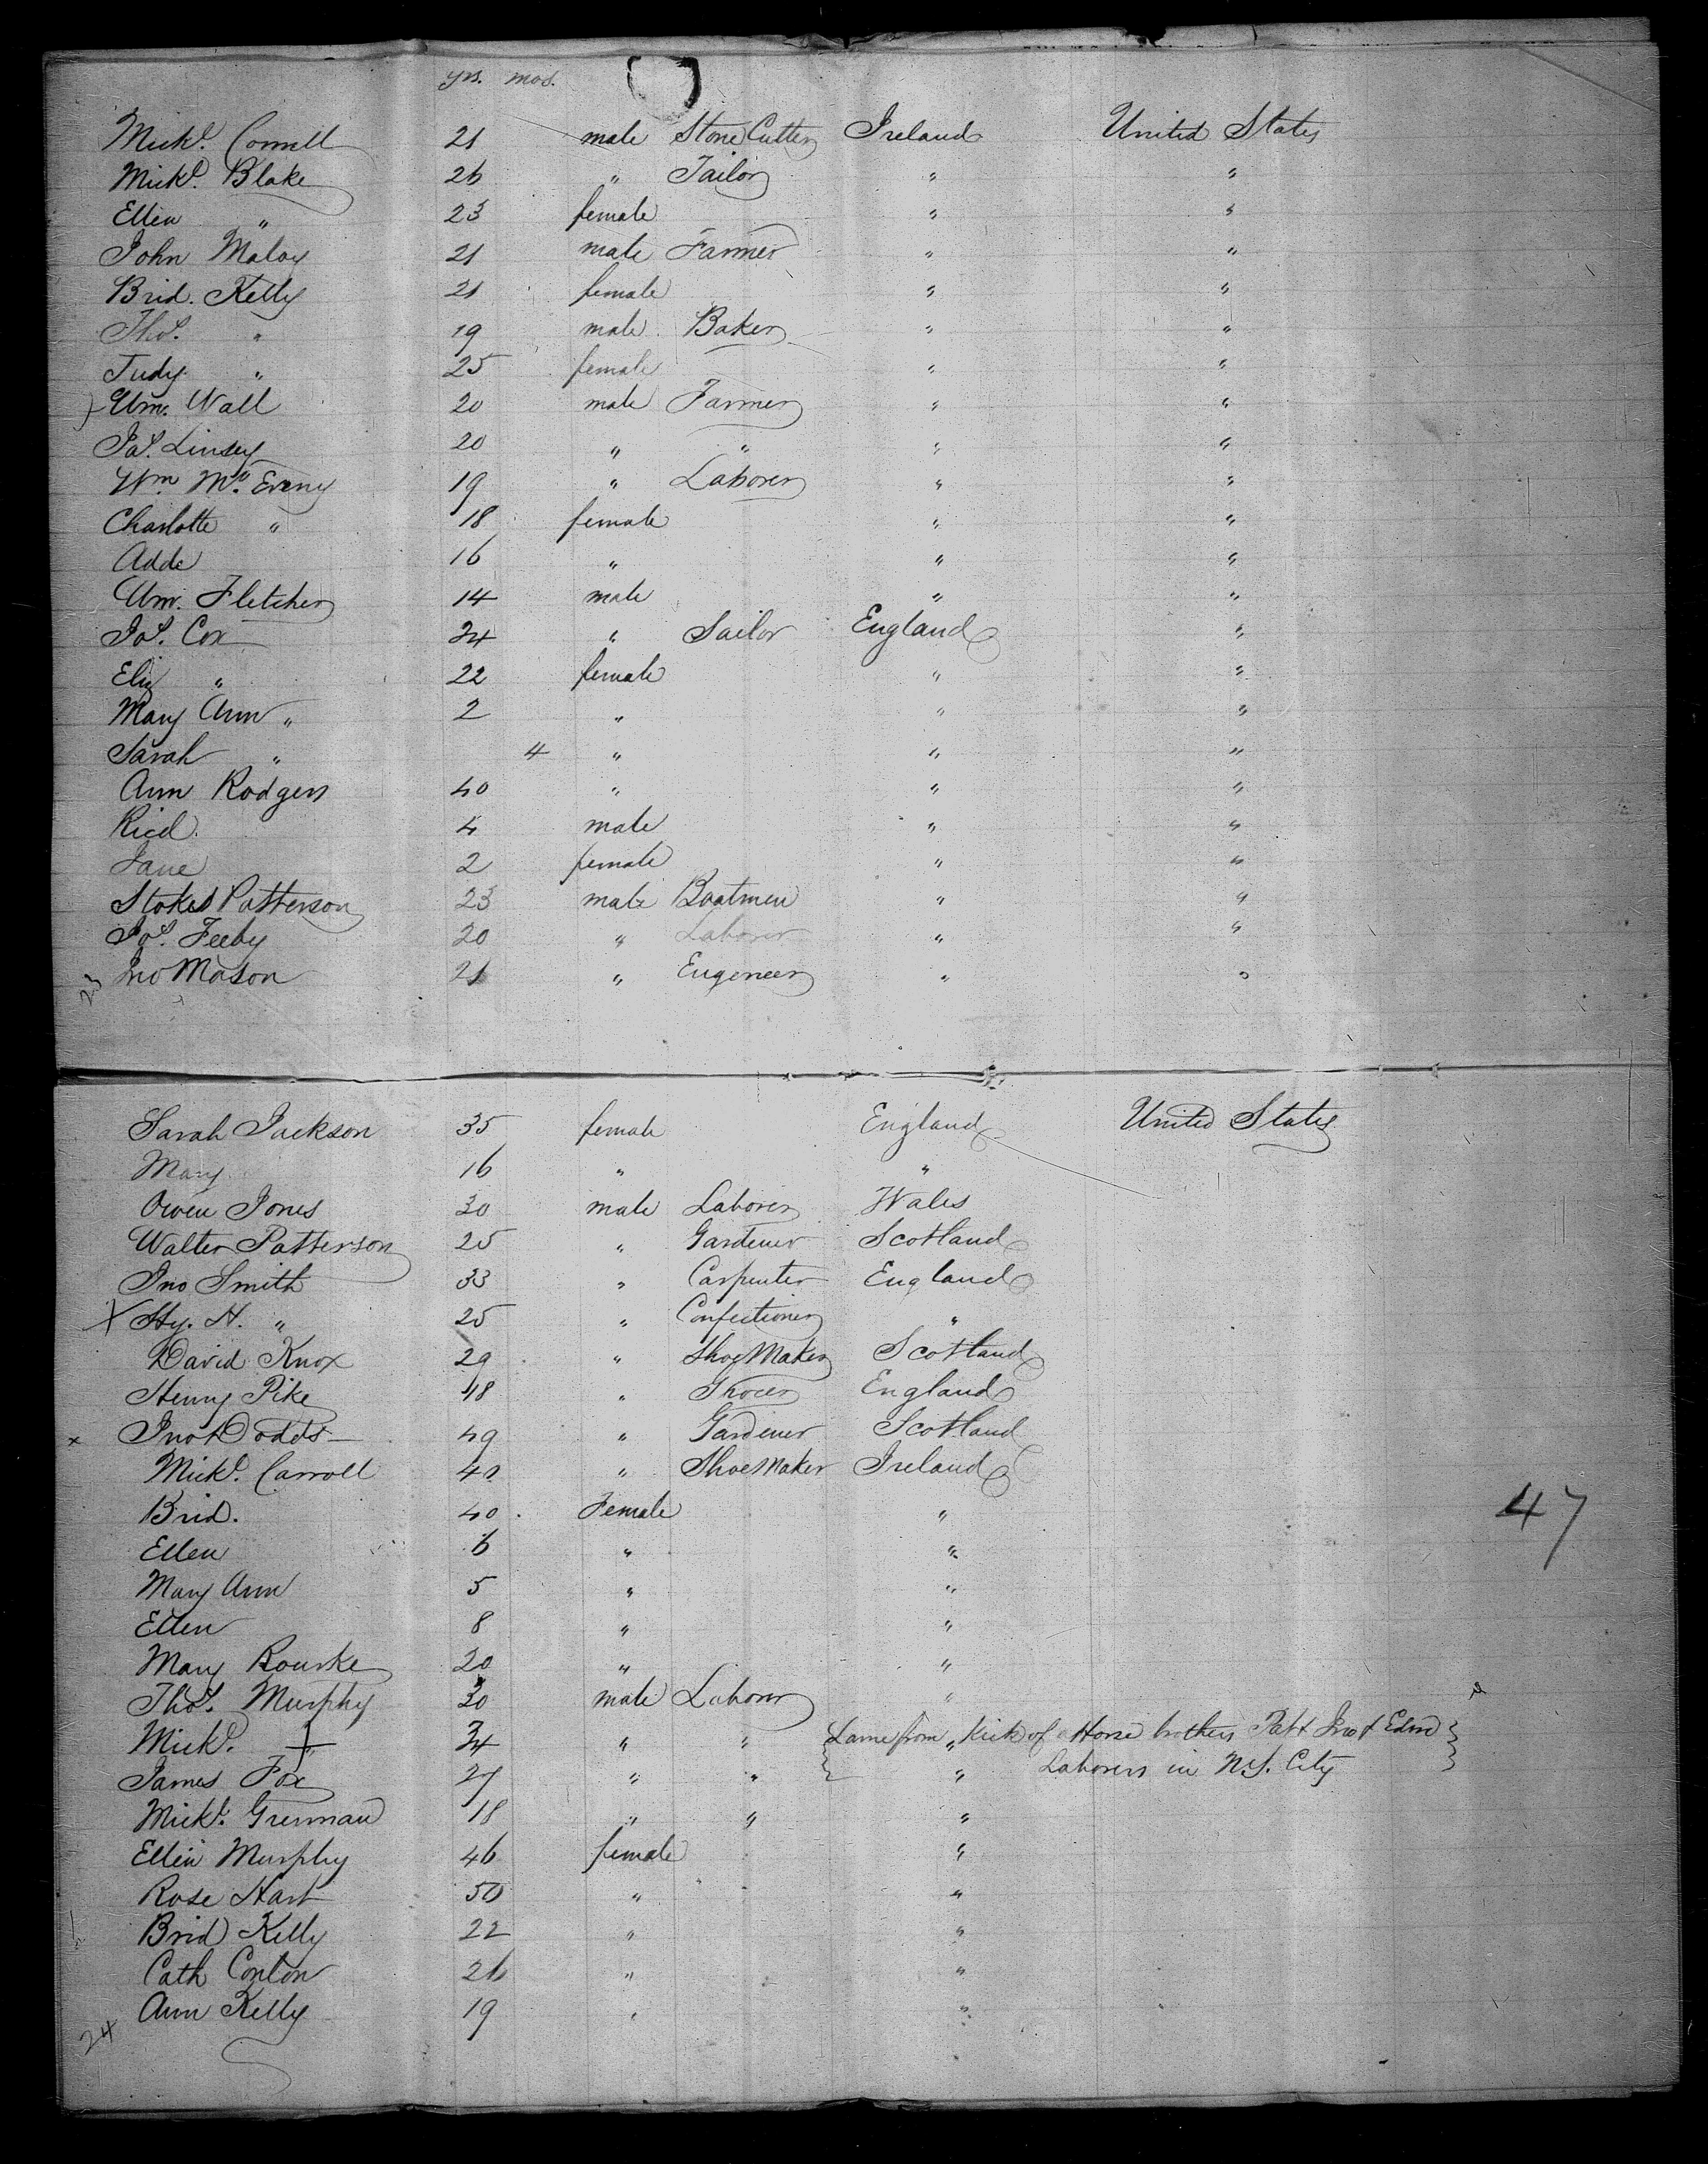 yrs. mos.
Mickl. Connell 21 male Stone Cutter Ireland United States
Mickl. Blake 26 " Tailor " "
Ellen " 23 female " "
John Maloy 21 male Farmer " "
Brid. Kelly 21 female " "
Thos. " 19 male Baker " "
Judy " 25 female " "
Wm. Wall 20 male Farmer " "
Jas. Linsey 20 " " " "
Wm Mc. Eveny 19 " Laborer " "
Charlotte " 18 female " "
Adde 16 " " "
Wm. Fletcher 14 male " "
Jos. Cox 24 " Sailor England "
Eliz " 22 female " "
Mary Ann " 2 " " "
Sarah " 4 " " "
Ann Rodgers 40 " " "
Ricd. 4 male " "
Jane 2 female " "
Stokes Patterson 23 male Boatmen " "
Jos. Feeby 20 " Laborer " "
23 Jno Mason 21 " Eugeneer " "
Sarah Jackson 35 female England United States
Mary 16 " "
Owen Jones 30 male Laborer Wales
Walter Patterson 25 " Gardener Scotland
Jno Smith 33 " Carpenter England
X Hy. H. " 25 " Confectioner "
David Knox 29 " Shoe Maker Scotland
Henry Pike 48 " Grocer England
x Jno Dodds 49 " Gardener Scotland
Mickl. Carroll 40 " Shoe Maker Ireland
Brid. 40 Female "
47
Ellen 6 " "
Mary Ann 5 " "
Ellen 8 " "
Mary Rourke 20 " "
Thos. Murphy 30 male Laborer "
Mickl. " 34 " " Lame from " Kick of Horse brothers Pat & Jno & Edm
James Fox 27 " " " Laborers in N.Y. City
Mickl. Grennan 18 " " "
Ellen Murphy 46 female "
Rose Hart 50 " "
Brid Kelly 22 " "
Cath Conlon 26 " "
Ann Kelly 19 " "
24